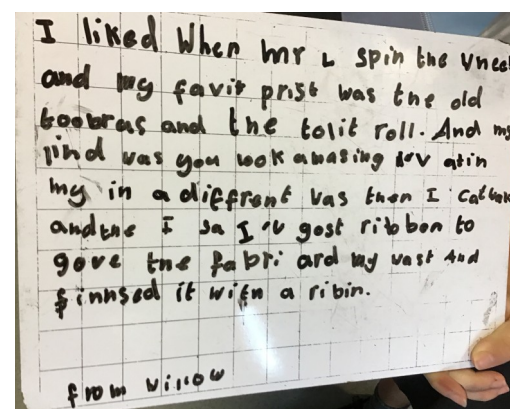 I liked When mr L spin the vheel
and my favit prist was the old
toobras and the tolit roll. And my
jind vas you wok amasing
my in a diffrent vas then I
and the I sa I gost ribbon to
gove the fabri ard my vast And
finnsed it with a ribin.
from Villow